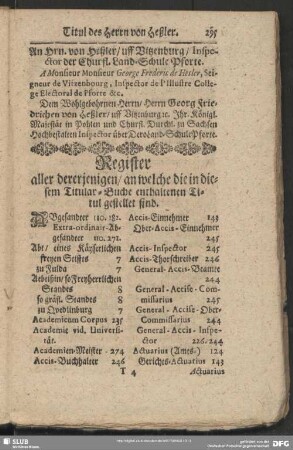 Titul des Herrn von Heßler. 295
An Hrn. von Heßler/ uff Vitzenburg/ Inspe-
ctor der Churfl. Land-Schule Pforte.
A Monsieur Monsieur George Frederic de Hesler, Sei-
gneur de Vitzenbourg, Inspector de l'Illustre Colle-
ge Electoral de Pforte &c.
Dem Wohlgebohrnen Herrn/ Herrn Georg Frie-
drichen von Heßler/ uff Vitzenburg ꝛc. Ihr. Königl.
Majestät in Pohlen und Churfl. Durchl. zu Sachsen
Hochbestalten Inspector über Dero Land-Schule Pforte.
Register
aller dererjenigen/ an welche die in die-
sem Titular-Buche enthaltenen Ti-
tul gestellet sind.
Abgesandter 110. 182.
Extra-ordinair-Ab-
gesandter 110. 271.
Abt/ eines Käyserlichen
freyen Stifts 7
zu Fulda 7
Aebtißin/ so Freyherrlichen
Standes 8
so gräfl. Standes 8
zu Qvedlinburg 7
Academicum Corpus 235
Academie vid. Universi-
tät.
Academien-Meister 274
Accis-Buchhalter 246
Accis-Einnehmer 245
Ober-Accis-Einnehmer
245
Accis-Inspector 245
Accis-Thorschreiber 246
General-Accis-Beamte
244
General-Accise-Com-
missarius 245
General-Accise-Ober-
Commissarius 244
General-Accis-Inspe-
ctor 226. 244
Actuarius (Ames.) 124
Gerichts-Actuarius 143
T 4 Actuarius
SLUB
DFG